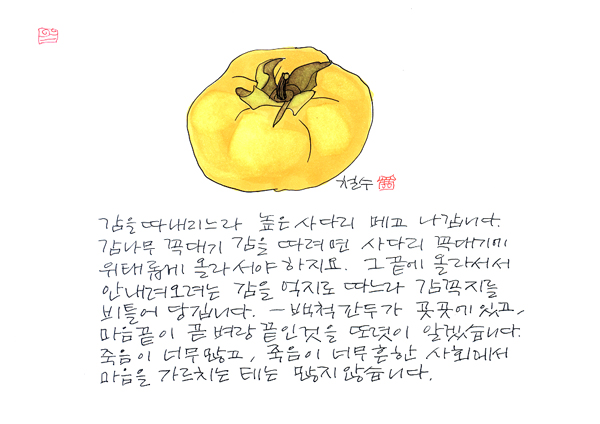 철수
감을 따내리느라 높은 사다리 메고 나갑니다.
감나무 꼭대기 감을 따려면 사다리 꼭대기에
위태롭게 올라서야 하지요. 그 끝에 올라서서
안 내려오려는 감을 억지로 따느라 감꼭지를
비틀어 당깁니다. — 백척간두가 곳곳에 있고,
마음끝이 곧 벼랑 끝인 것을 또렷이 알겠습니다.
죽음이 너무 많고, 죽음이 너무 흔한 사회에서
마음을 가르치는 데는 많지 않습니다.